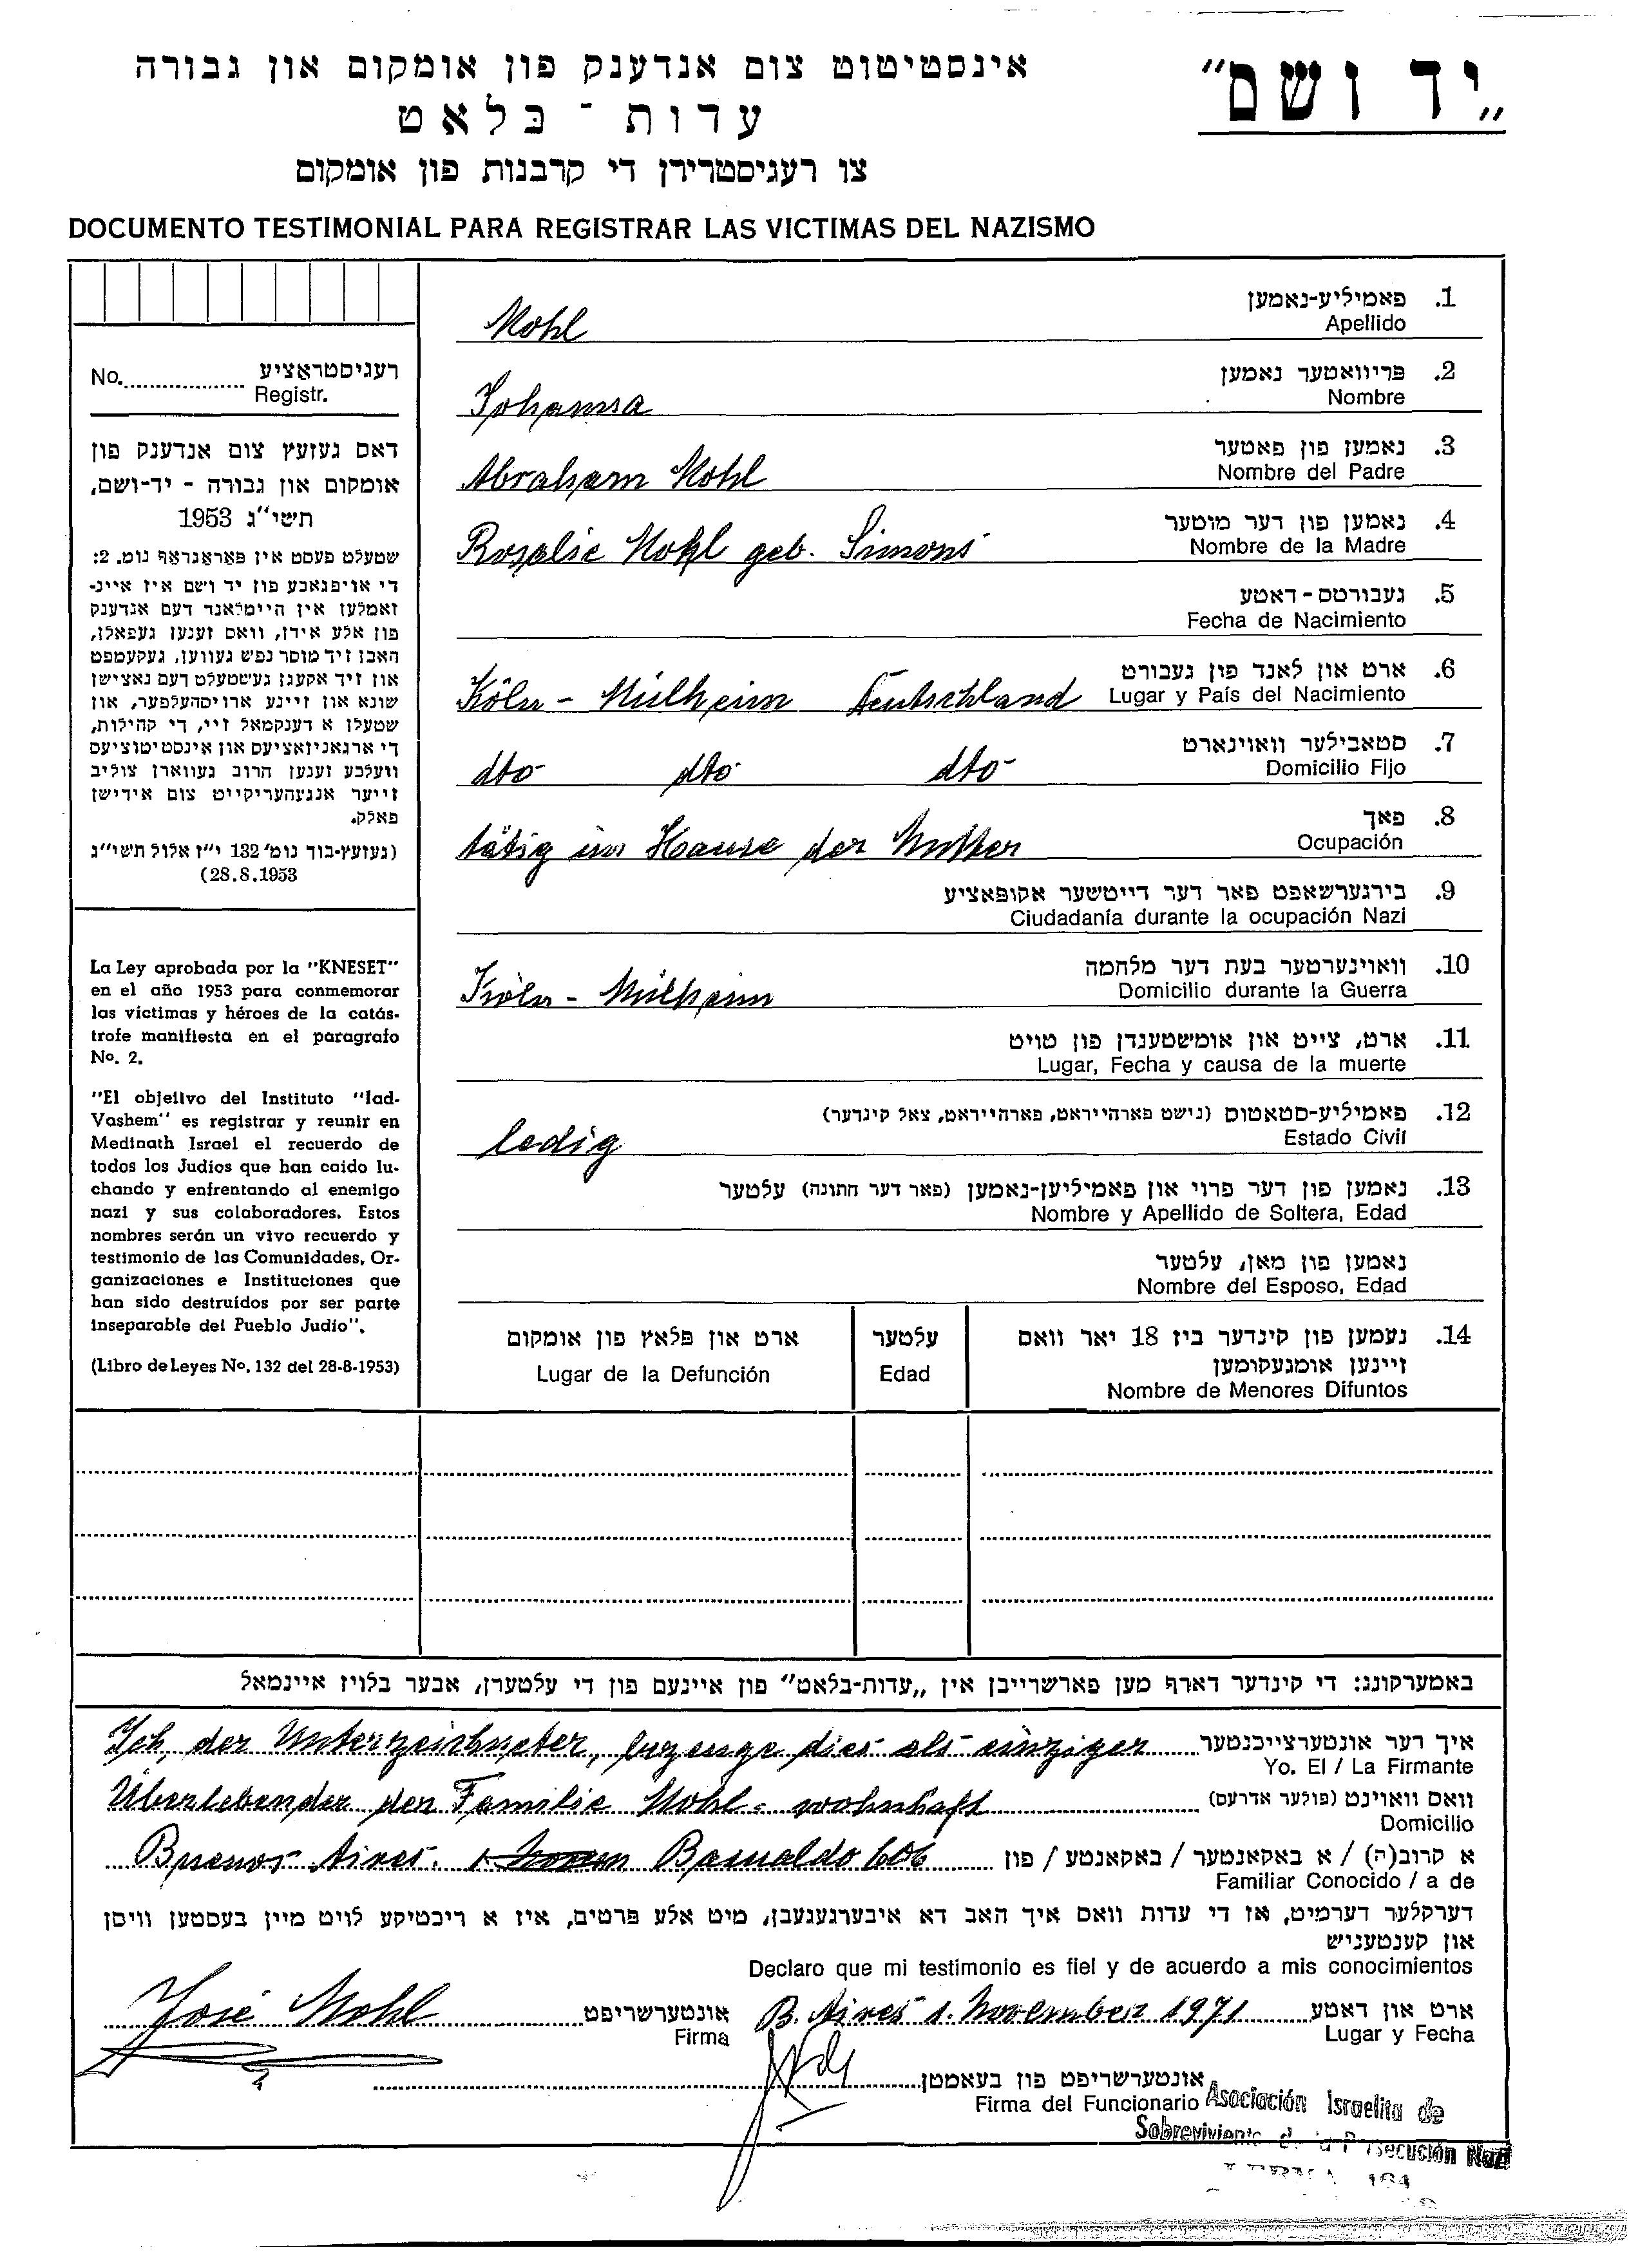 „יד ושם"
אינסטיטוט צום אנדענק פון אומקום און גבורה
עדות - בלאט
צו רעגיסטרירן די קרבנות פון אומקום
DOCUMENTO TESTIMONIAL PARA REGISTRAR LAS VICTIMAS DEL NAZISMO
רעגיסטראציע
No. Registr.
דאס געזעץ צום אנדענק פון
אומקום און גבורה - יד-ושם,
תשי"ג 1953
שטעלט פעסט אין פאראגראף נומ. 2:
די אויפגאבע פון יד ושם איז איינ-
זאמלען אין היימלאנד דעם אנדענק
פון אלע אידן, וואס זענען געפאלן,
האבן זיך מוסר נפש געווען, געקעמפט
און זיך אקעגן געשטעלט דעם נאצישן
שונא און זיינע ארויסהעלפער, און
שטעלן א דענקמאל זיי, די קהילות,
די ארגאניזאציעס און אינסטיטוציעס
וועלכע זענען חרוב געווארן צוליב
זייער אנגעהעריקייט צום אידישן
פאלק.
(געזעץ-בוך נומ' 132 י"ז אלול תשי"ג
28.8.1953)
La Ley aprobada por la "KNESET"
en el año 1953 para conmemorar
las víctimas y héroes de la catás-
trofe manifiesta en el paragrafo
No. 2.
"El objetivo del Instituto "Iad-
Vashem" es registrar y reunir en
Medinath Israel el recuerdo de
todos los Judios que han caido lu-
chando y enfrentando al enemigo
nazi y sus colaboradores. Estos
nombres serán un vivo recuerdo y
testimonio de las Comunidades, Or-
ganizaciones e Instituciones que
han sido destruídos por ser parte
inseparable del Pueblo Judío".
(Libro de Leyes No. 132 del 28-8-1953)
1. פאמיליע-נאמען
Apellido
Mohl
2. פריוואטער נאמען
Nombre
Johanna
3. נאמען פון פאטער
Nombre del Padre
Abraham Mohl
4. נאמען פון דער מוטער
Nombre de la Madre
Rosalie Mohl geb. Simons
5. געבורטס-דאטע
Fecha de Nacimiento
6. ארט און לאנד פון געבורט
Lugar y País del Nacimiento
Köln - Mülheim Deutschland
7. סטאבילער וואוינארט
Domicilio Fijo
dto dto dto
8. פאך
Ocupación
tätig im Hause der Mutter
9. בירגערשאפט פאר דער דייטשער אקופאציע
Ciudadanía durante la ocupación Nazi
10. וואוינערטער בעת דער מלחמה
Domicilio durante la Guerra
Köln - Mülheim
11. ארט, צייט און אומשטענדן פון טויט
Lugar, Fecha y causa de la muerte
12. פאמיליע-סטאטוס (נישט פארהייראט, פארהייראט, צאל קינדער)
Estado Civil
ledig
13. נאמען פון דער פרוי און פאמיליען-נאמען (פאר דער חתונה) עלטער
Nombre y Apellido de Soltera, Edad
נאמען פון מאן, עלטער
Nombre del Esposo, Edad
14. נעמען פון קינדער ביז 18 יאר וואס
זיינען אומגעקומען
Nombre de Menores Difuntos
עלטער
Edad
ארט און פלאץ פון אומקום
Lugar de la Defunción
באמערקונג: די קינדער דארף מען פארשרייבן אין „עדות-בלאט" פון איינעם פון די עלטערן, אבער בלויז איינמאל
איך דער אונטערצייכנטער
Yo. El / La Firmante
Ich, der Unterzeichneter, bezeuge dies als einziger
וואס וואוינט (פולער אדרעס)
Domicilio
Überlebender der Familie Mohl. wohnhaft
א קרוב(ה) / א באקאנטער / באקאנטע / פון
Familiar Conocido / a de
Buenos Aires. Basualdo 606
דערקלער דערמיט, אז די עדות וואס איך האב דא איבערגעגעבן, מיט אלע פרטים, איז א ריכטיקע לויט מיין בעסטען וויסן
און קענטעניש
Declaro que mi testimonio es fiel y de acuerdo a mis conocimientos
ארט און דאטע
Lugar y Fecha
B. Aires 1. November 1971
אונטערשריפט
Firma
José Mohl
אונטערשריפט פון בעאמטן
Firma del Funcionario
Asociación Israelita de
Sobreviviente de la Persecución Nazi